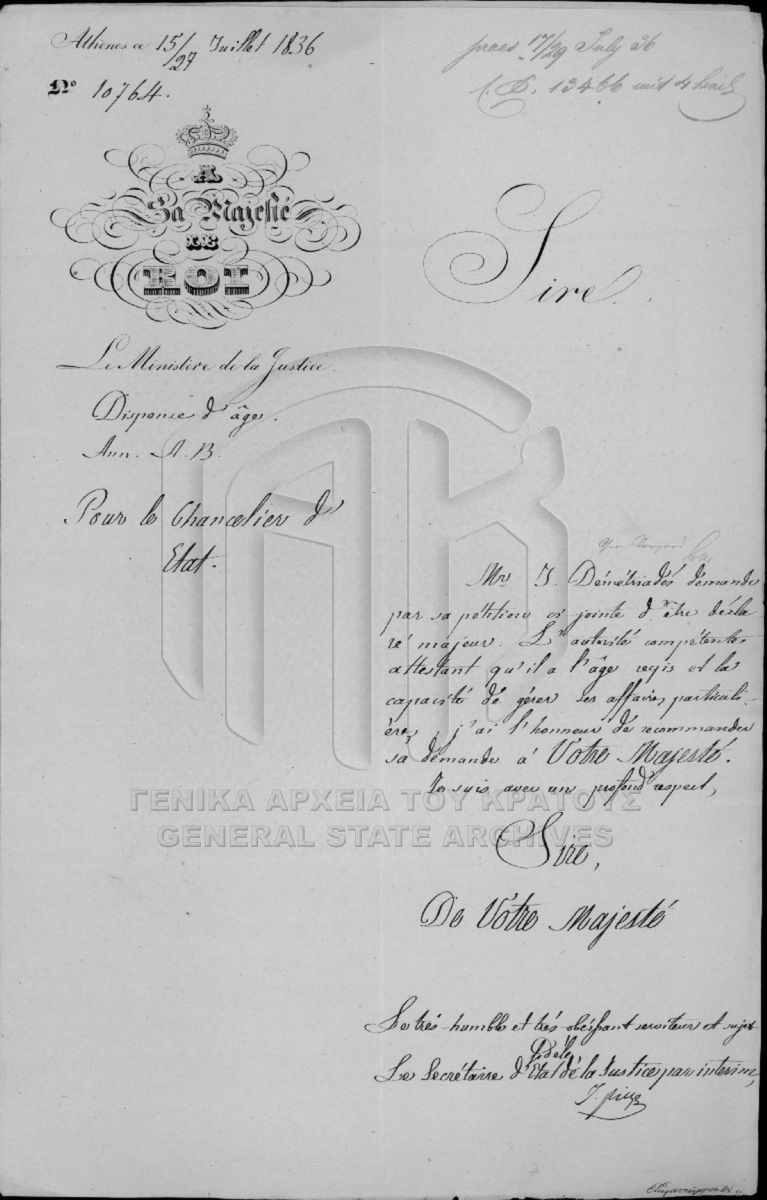 Athènes ce 15/27 Juillet 1836
No 10764.
praes 17/29 July 36
13466 mit 4
A
Sa Majesté
LE
ROI
Sire
Le Ministère de la Justice.
Dispense d'âge.
Ann. A. B.
Pour le Chancelier d'
Etat.
Mr J. Démétriadés demande
par sa pétition ci jointe d'être décla
ré majeur. L'autorité compétente
attestant qu'il a l'âge reqis et la
capacité dé gérer ses affaires particuli-
ères, j'ai l'honneur dé recommander
sa demande à Votre Majesté.
Je suis avec un profond respect,
ΓΕΝΙΚΑ ΑΡΧΕΙΑ ΤΟΥ ΚΡΑΤΟΥΣ
GENERAL STATE ARCHIVES
Sire,
De Vôtre Majesté
Le trés-humble et trés-obéissant serviteur et sujet
fidéle
Le Secrétaire d'Etat dé la Justice par interim,